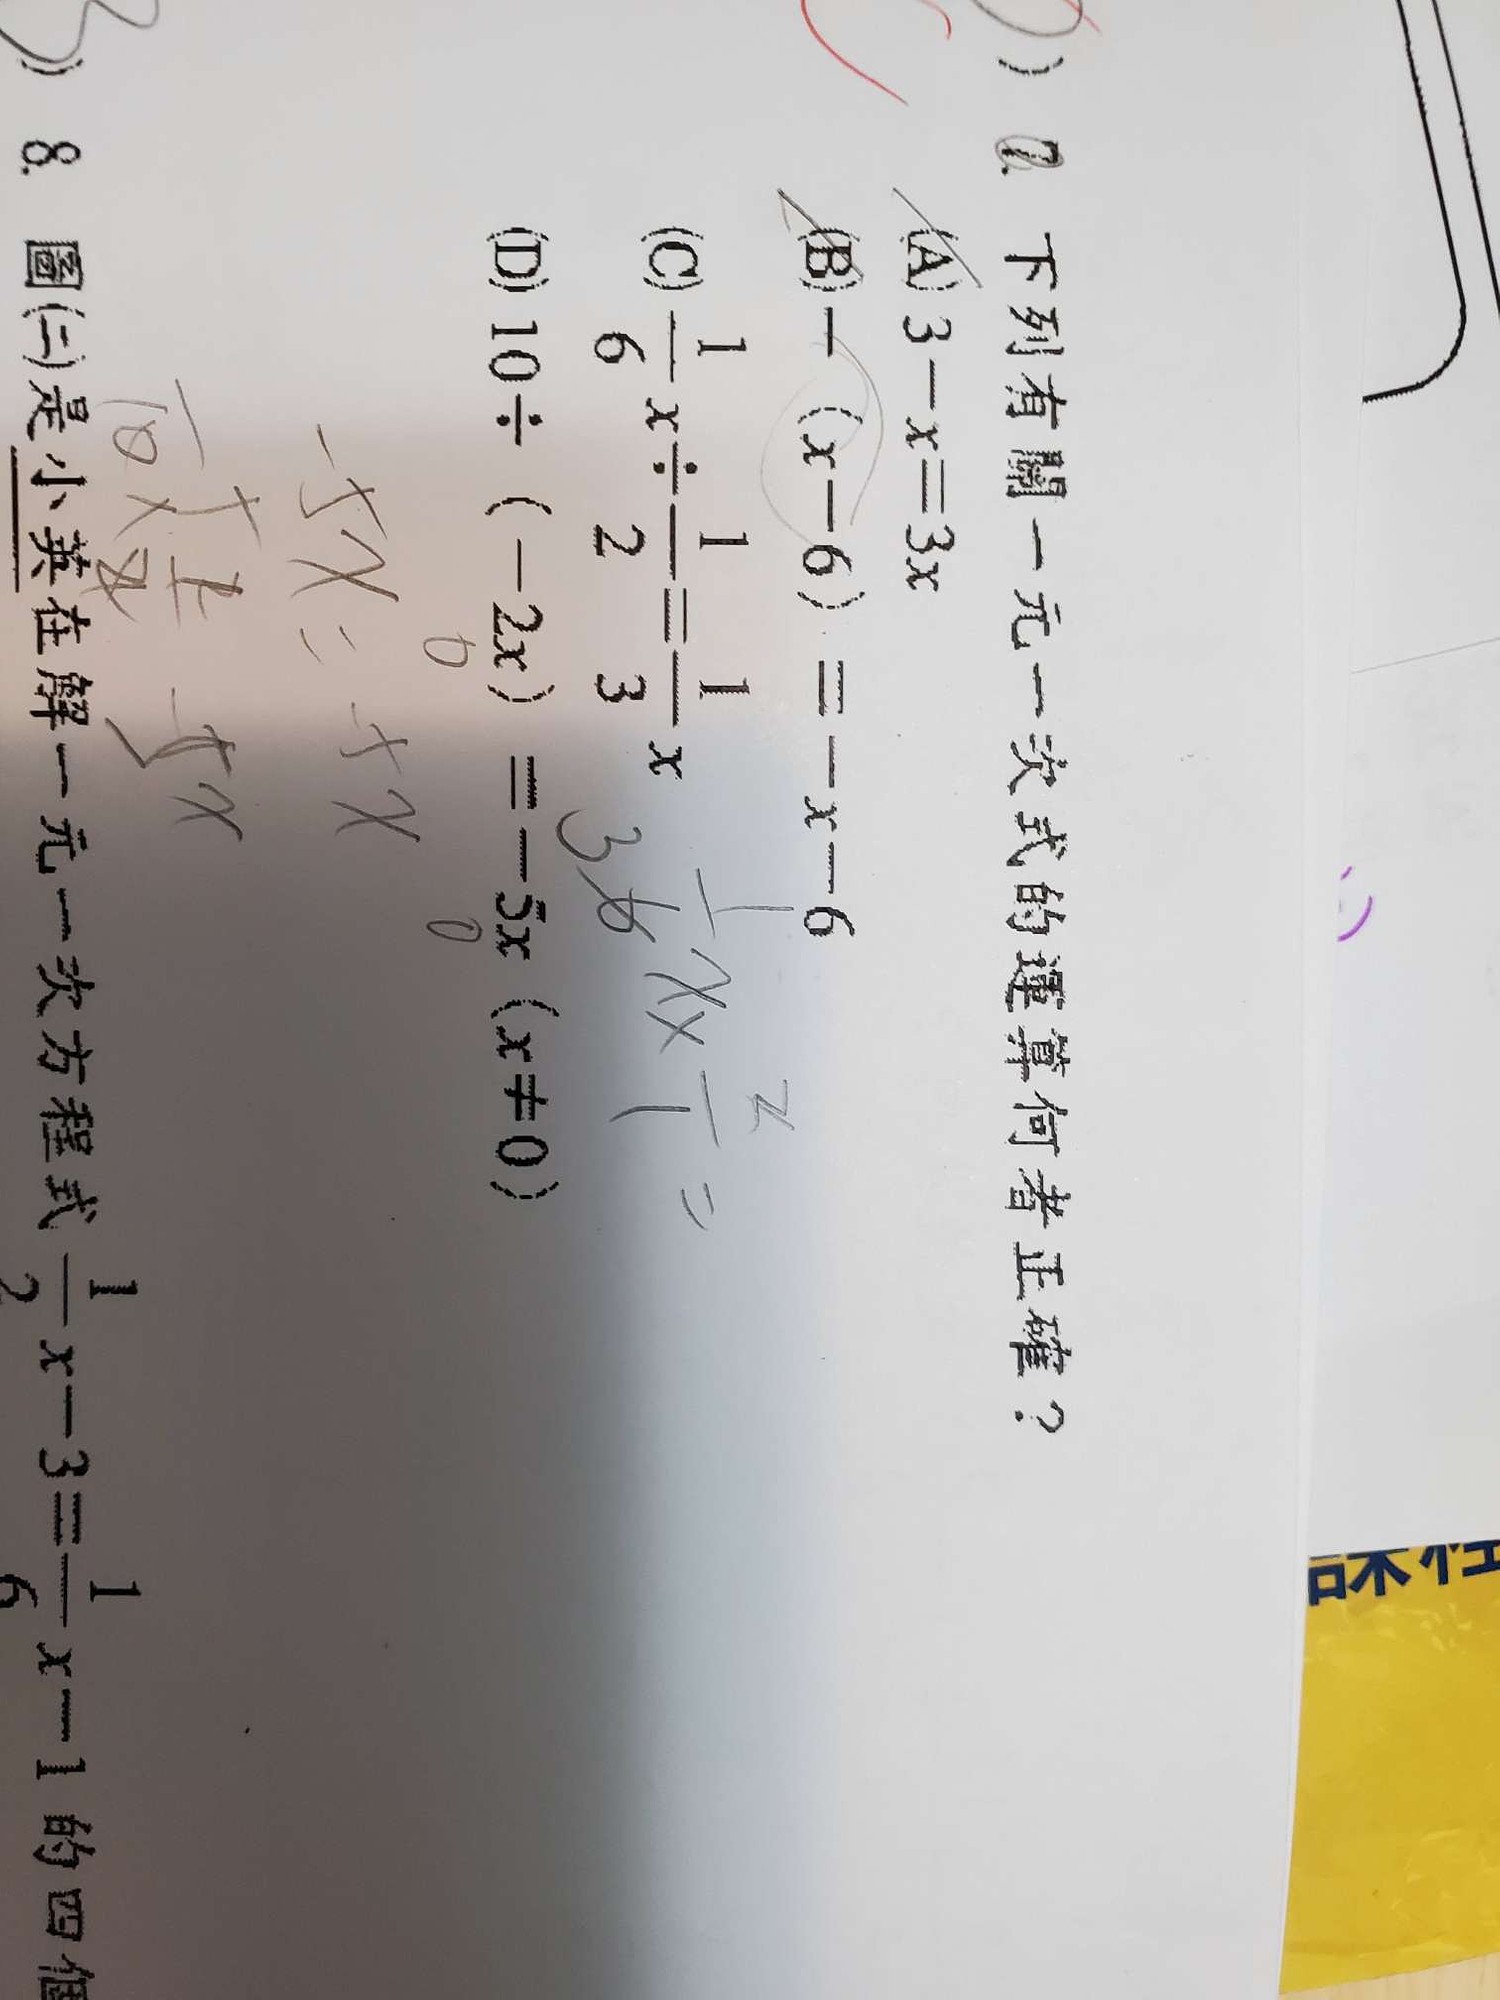 ) 7. 下列有關一元一次式的運算何者正確？
C
(A) 3－x＝3x
(B)－（x－6）＝－x－6
(C) 1/6 x÷1/2＝1/3 x
1/6 x × 2/1 =
3
(D) 10÷（－2x）＝－5x（x≠0）
-5x = -5x
) 8. 圖(二)是小英在解一元一次方程式 1/2 x－3＝1/6 x－1 的四個
課程